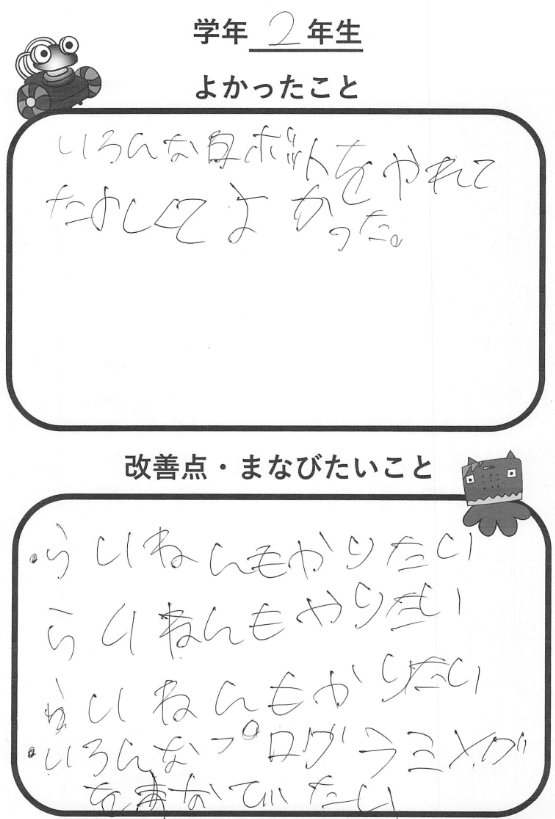 学年 2 年生
よかったこと
いろんなロボットをやれて
たのしくてよかった。
改善点・まなびたいこと
・らいねんもやりたい
らいねんもやりたい
らいねんもやりたい
・いろんなプログラミング
をまなんでいたい